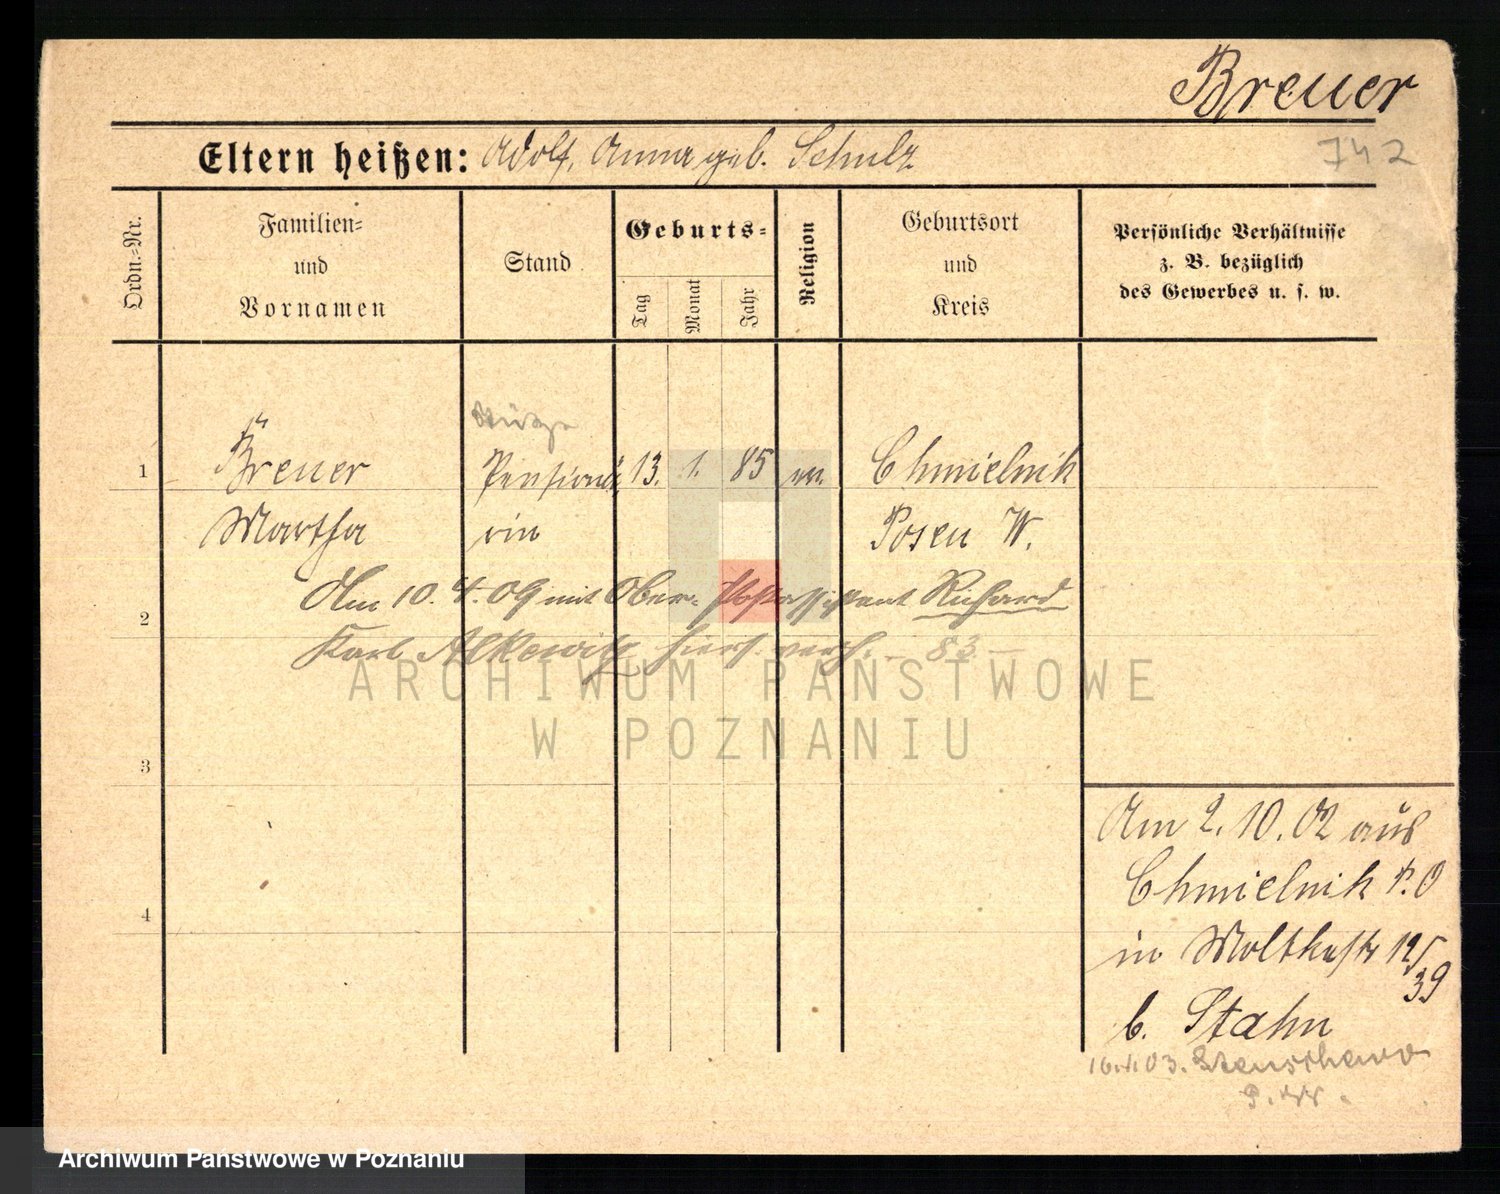 Breuer
742
Eltern heißen: Adolf, Anna geb. Schulz
Ordn.-Nr.
Familien-
und
Vornamen
Stand
Geburts-
Tag
Monat
Jahr
Religion
Geburtsort
und
Kreis
Persönliche Verhältnisse
z. B. bezüglich
des Gewerbes u. s. w.
Stütze
1 Breuer Pensionä 13. 1. 85 ev. Chmielnik
Martha rin Posen W.
Am 10. 4. 09 mit Ober-Postassistent Richard
2
Karl hier verh. - 83 -
ARCHIWUM PAŃSTWOWE
W POZNANIU
3
Am 2. 10. 02 aus
Chmielnik P. O
4
in Moltkestr 12/
39
b. Stahn
03.
P. W.
Archiwum Państwowe w Poznaniu